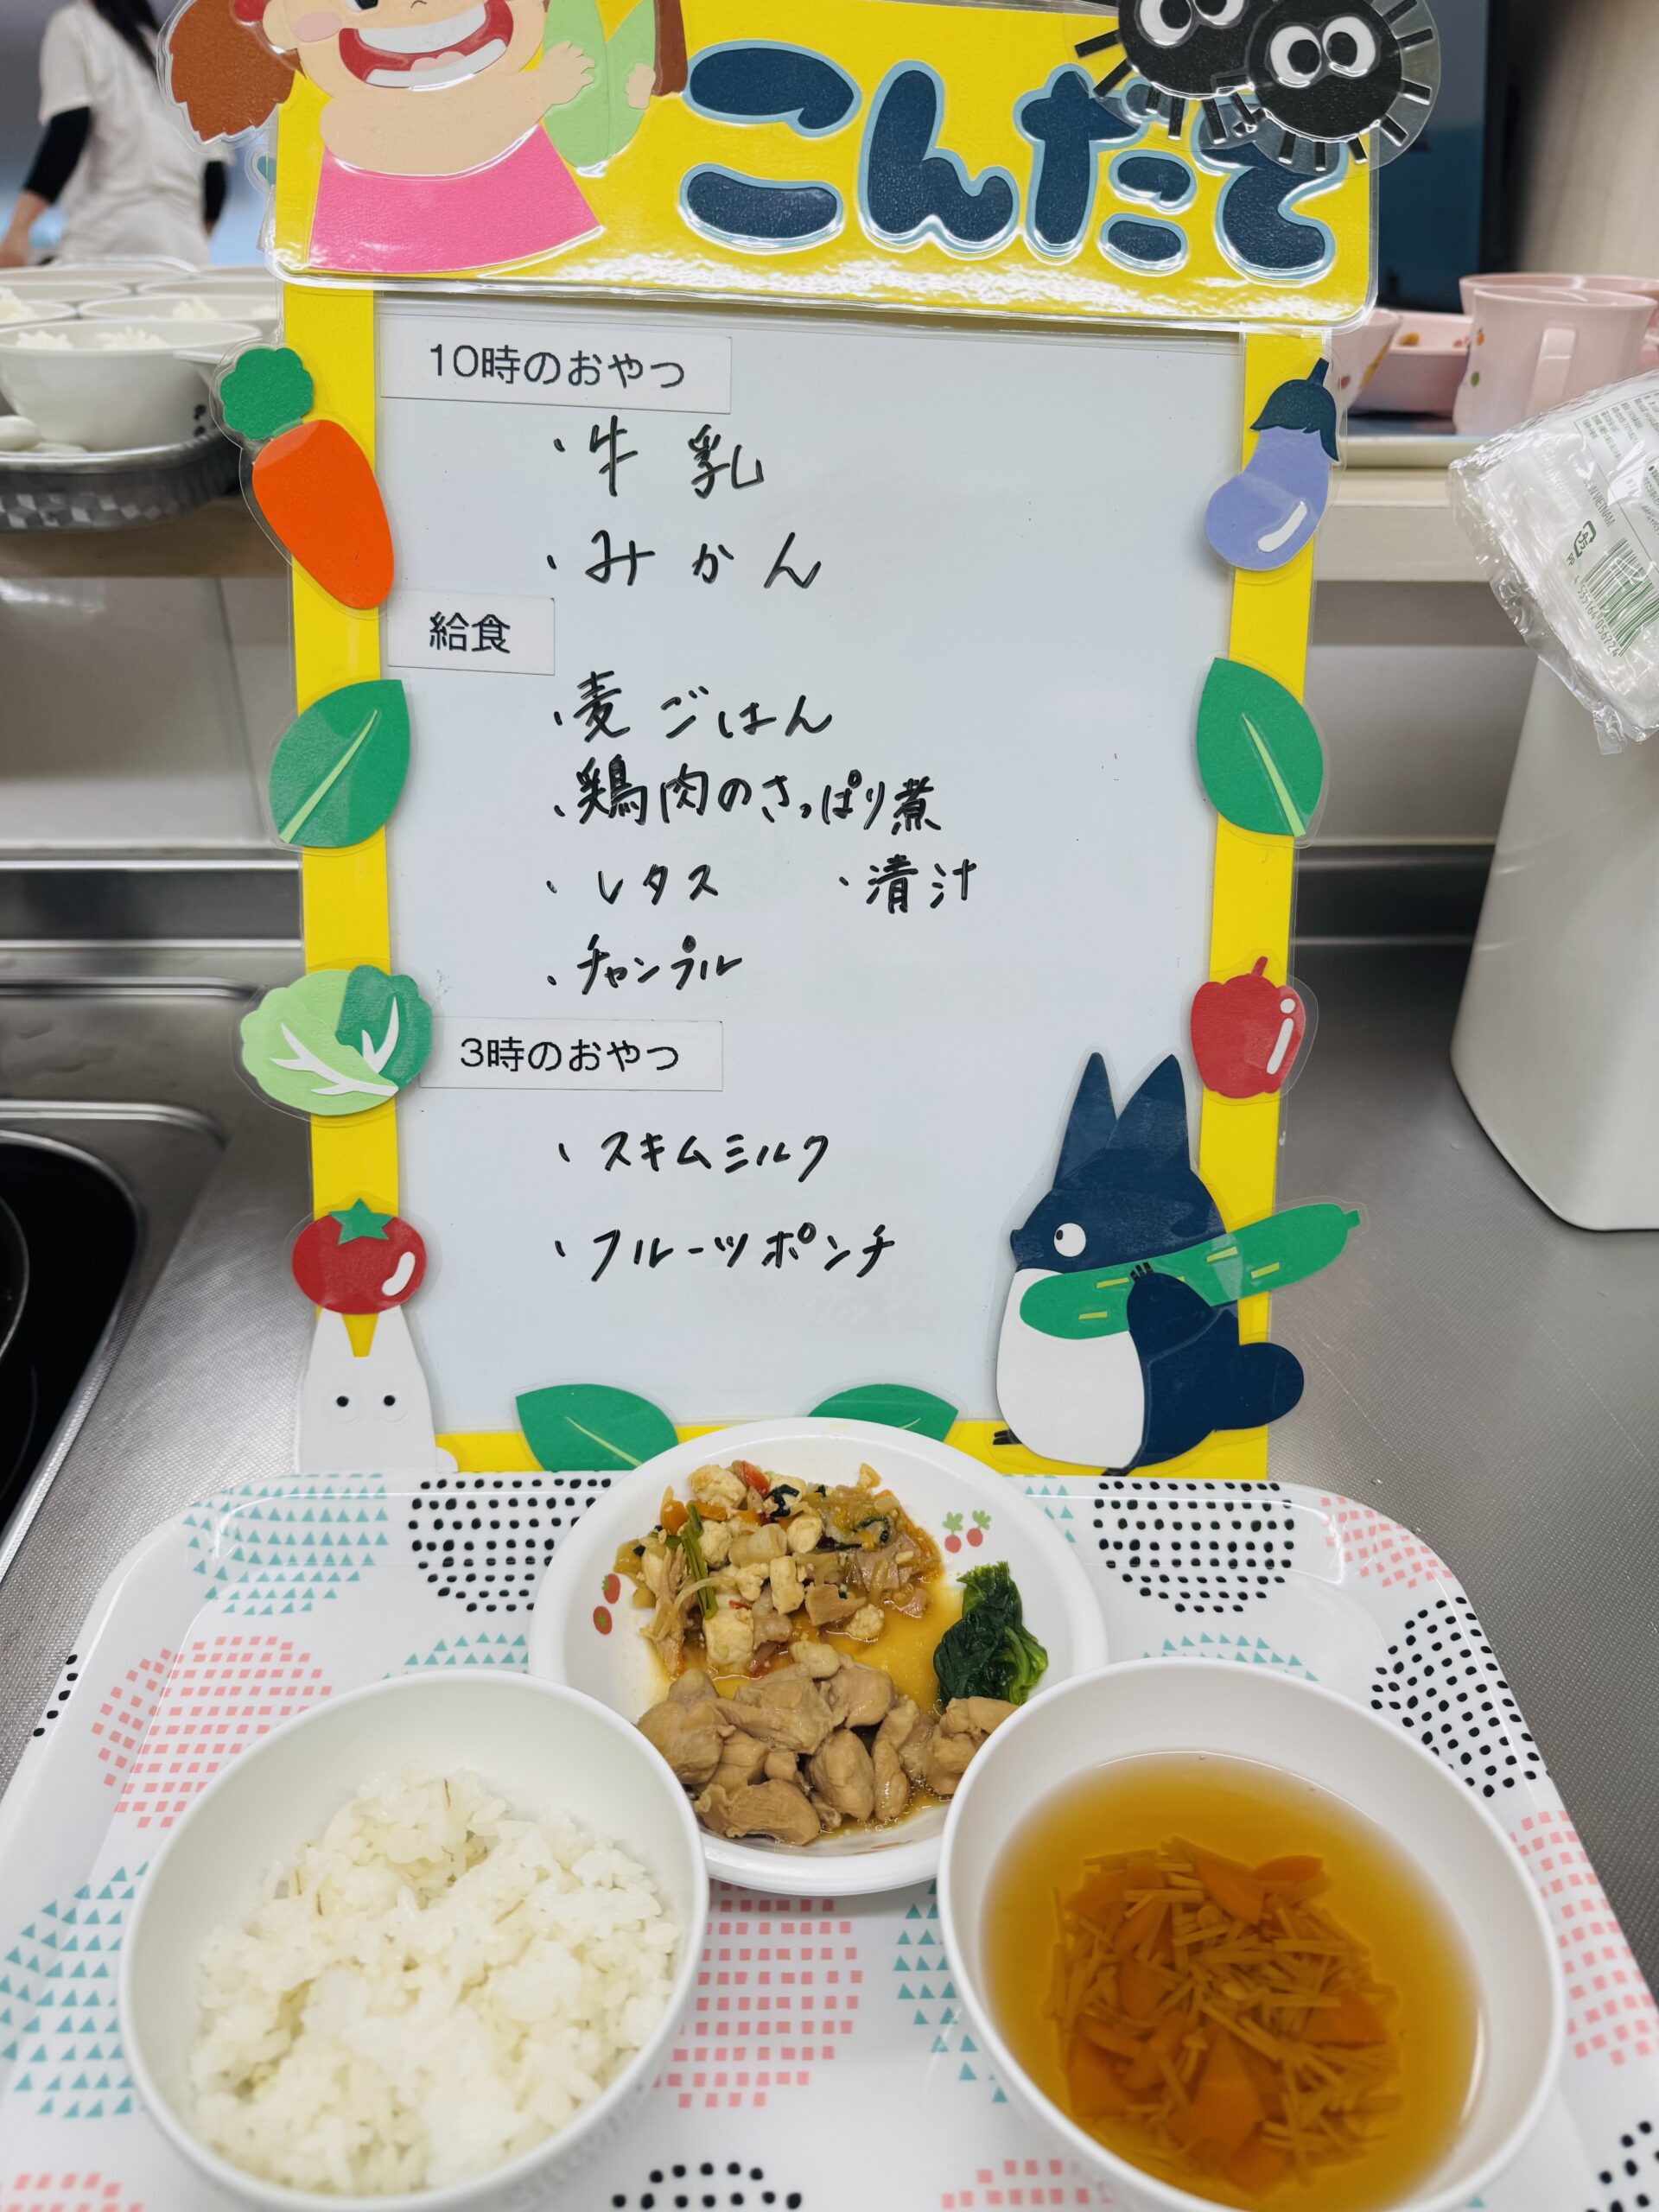 こんだて
10時のおやつ
・牛乳
・みかん
給食
・麦ごはん
・鶏肉のさっぱり煮
・レタス ・清汁
・チャンプル
3時のおやつ
・スキムミルク
・フルーツポンチ